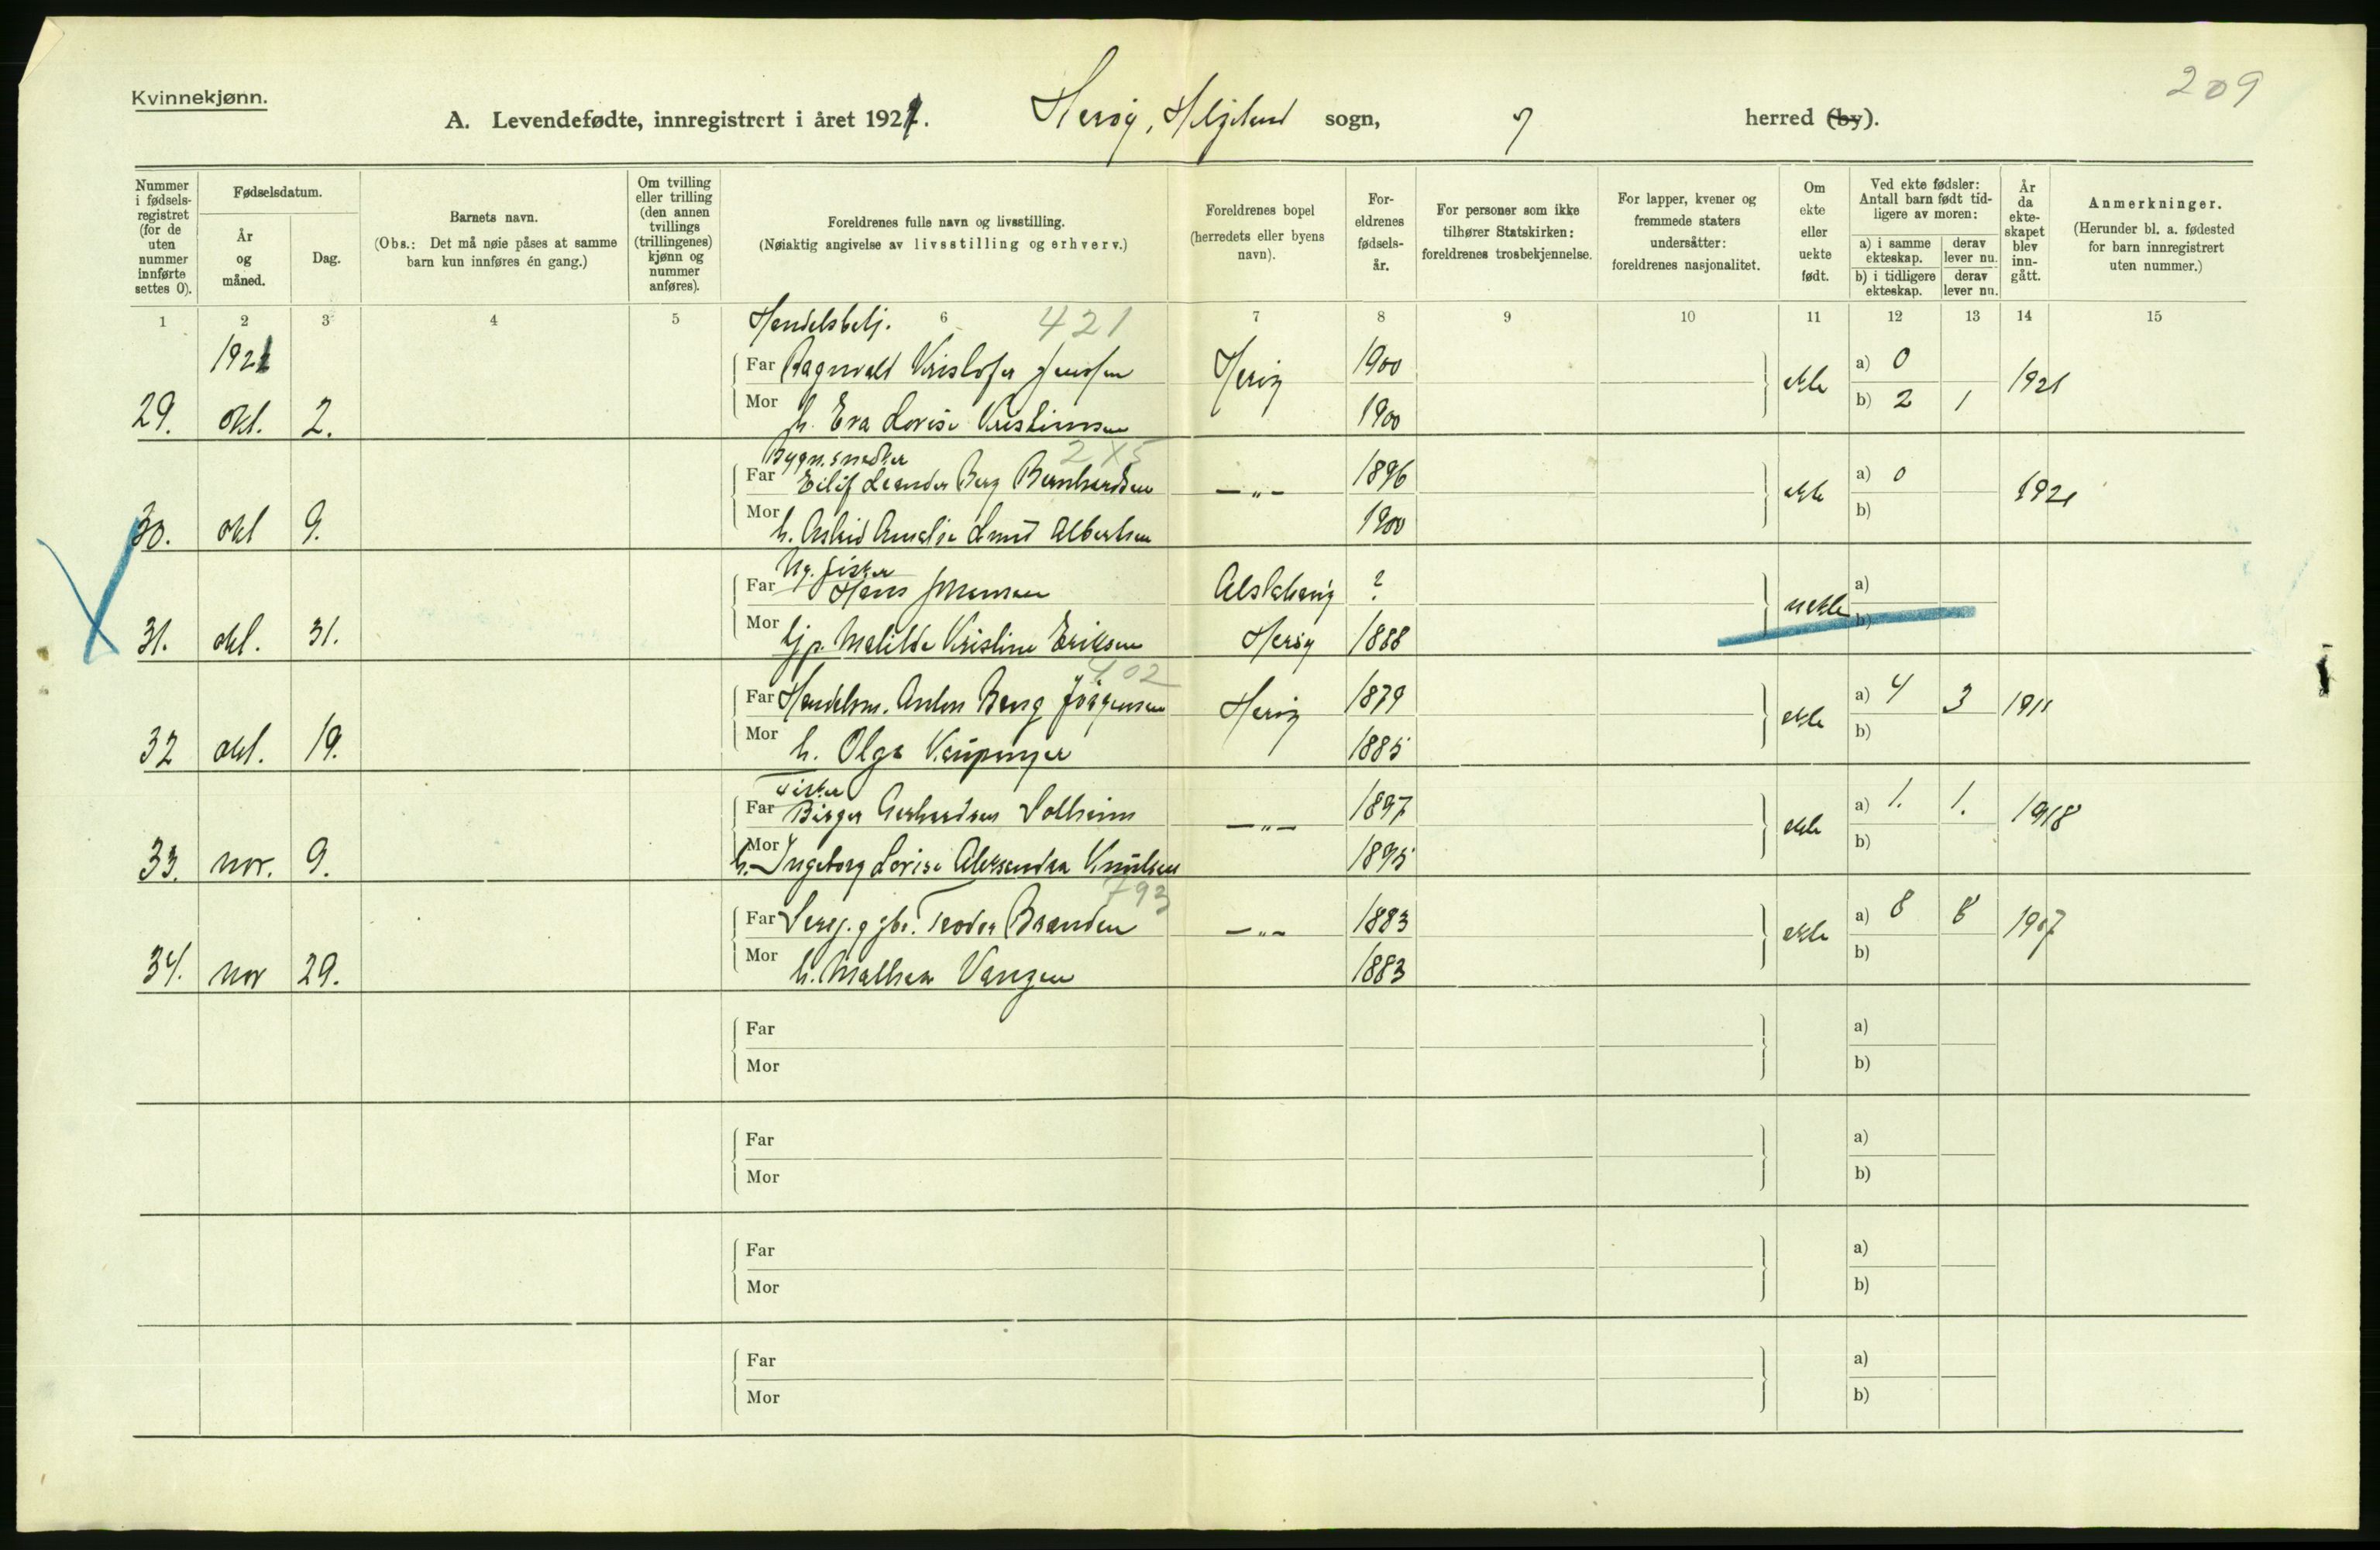 209
Kvinnekjønn.
A. Levendefødte, innregistrert i året 1921. Herøy, Helgeland sogn, herred (by).
Nummer i fødsels-registret (for de uten nummer innførte settes 0).
Fødselsdatum.
År og måned.
Dag.
Barnets navn.
(Obs.: Det må nøie påses at samme barn kun innføres én gang.)
Om tvilling eller trilling (den annen tvillings (trillingenes) kjønn og nummer anføres).
Foreldrenes fulle navn og livsstilling.
(Nøiaktig angivelse av livsstilling og erhverv.)
Foreldrenes bopel (herredets eller byens navn).
For-eldrenes fødsels-år.
For personer som ikke tilhører Statskirken: foreldrenes trosbekjennelse.
For lapper, kvener og fremmede staters undersåtter: foreldrenes nasjonalitet.
Om ekte eller uekte født.
Ved ekte fødsler: Antall barn født tid-ligere av moren:
a) i samme ekteskap.
derav lever nu.
b) i tidligere ekteskap.
derav lever nu.
År da ekte-skapet blev inn-gått.
Anmerkninger.
(Herunder bl. a. fødested for barn innregistrert uten nummer.)
1 2 3 4 5 6 7 8 9 10 11 12 13 14 15
Handelsbetj. 421
1921
Far Ragnvald Kristofer Jensen Herøy 1900 ekte a) 0 1921
29. okt. 2. Mor h. Eva Lovise Kristiansen 1900 b) 2 1
Bygn. snedker 2X5
Far Eilif Leander Berg Bernhardsen —„— 1896 ekte a) 0 1921
30. okt 9. Mor h. Astrid Amalie Lund Albertsen 1900 b)
Ug. fisker
Far Hans Johansen Alstahaug ? uekte a)
31. okt. 31. Mor tj.p. Matilde Kristine Eriksen Herøy 1888 b)
402
Far Handelsm. Anton Berg Jörgensen Herøy 1879 ekte a) 4 3 1911
32 okt. 19. Mor h. Olga Kaupanger 1885 b)
Fisker
Far Birger Gerhardsen Solheim —„— 1897 ekte a) 1. 1. 1918
33. nov. 9. Mor h. Ingeborg Lovise Aleksandra Knutsen 1895 b)
793
Far Sersj. g gbr. Teodor Branden —„— 1883 ekte a) 8 8 1907
34. nov 29. Mor h. Mathea Vangen 1883 b)
Far a)
Mor b)
Far a)
Mor b)
Far a)
Mor b)
Far a)
Mor b)